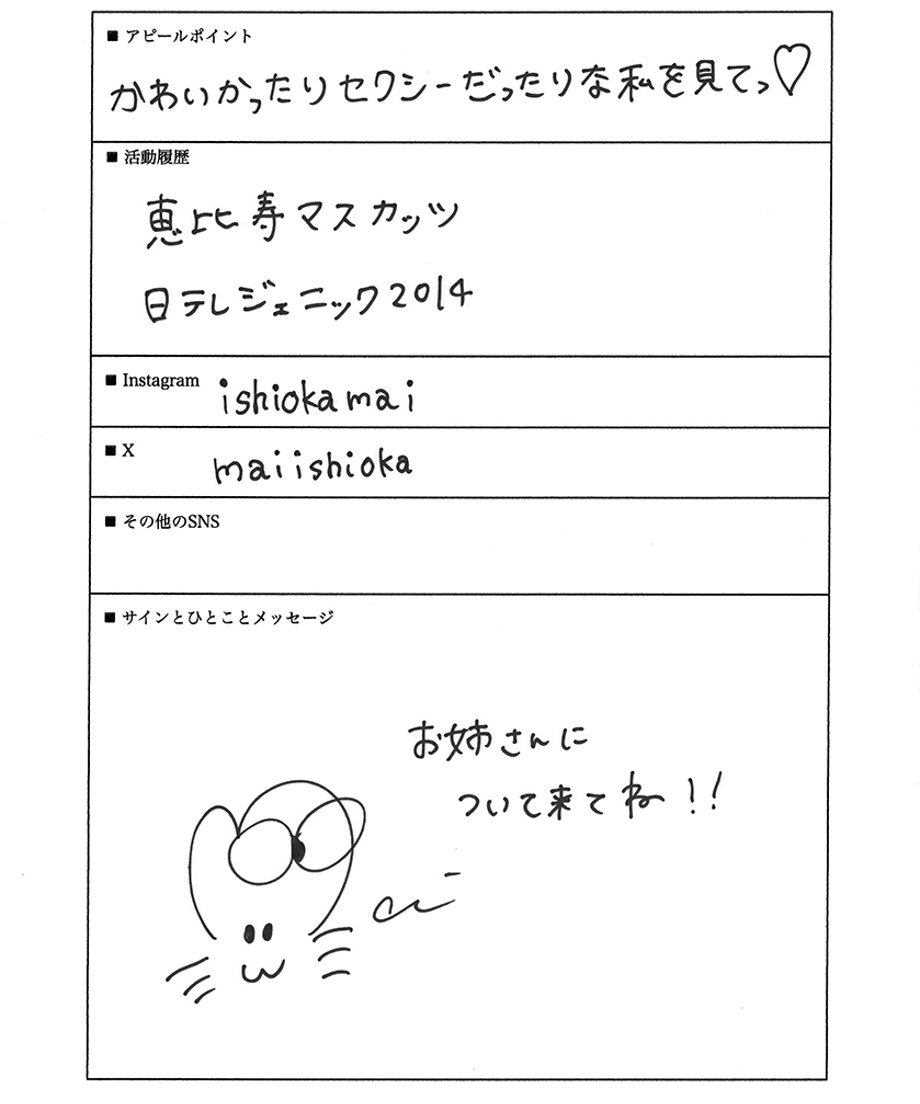 ■ アピールポイント
かわいかったりセクシーだったりな私を見てっ♡
■ 活動履歴
恵比寿マスカッツ
日テレジェニック2014
■ Instagram ishiokamai
■ X maiishioka
■ その他のSNS
■ サインとひとことメッセージ
お姉さんに
ついて来てね!!